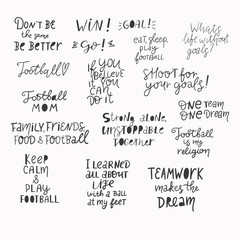 DON'T BE
the same
BE BETTER
WIN!
& Go!
GOAL!
eat, sleep,
play
football
Whats
life without
goals?
Football
IF YOU
BELIEVE
IT YOU
CAN
DO IT
SHOOT FOR
your goals!
Football
MOM
Strong alone,
UNSTOPPABLE
TOGETHER
ONE TEAM
ONE DREAM
FAMILY, FRIENDS,
FOOD & FOOTBALL
Football
is my
religion
KEEP
CALM
&
PLAY
FOOTBALL
I LEARNED
all about
LIFE
with a Ball
at my feet
TEAMWORK
makes the
DREAM